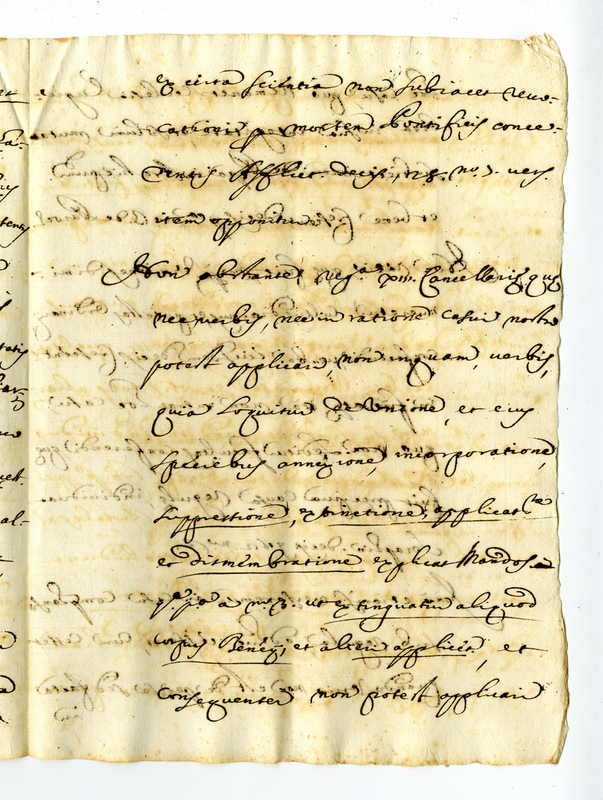 ex certa scientia non subiacet revo-
cationi p mortem Pontificis conce-
dentis Afflict. decis. 128. no. 5. vers.
item opponitur
Non obstante reg.a Cancellariæ, quæ
nec verbis, nec in ratione casui nostro
potest applicari, non inquam, verbis,
quia loquitur de Unione, et eius
speciebus annexione, incorporatione,
suppressione, extinctione, applicat.ne
et dismembratione explicat Mandos.
ut extinguatur aliquod
corpus Benef., et alteri applicet., et
consequenter non potest applicari